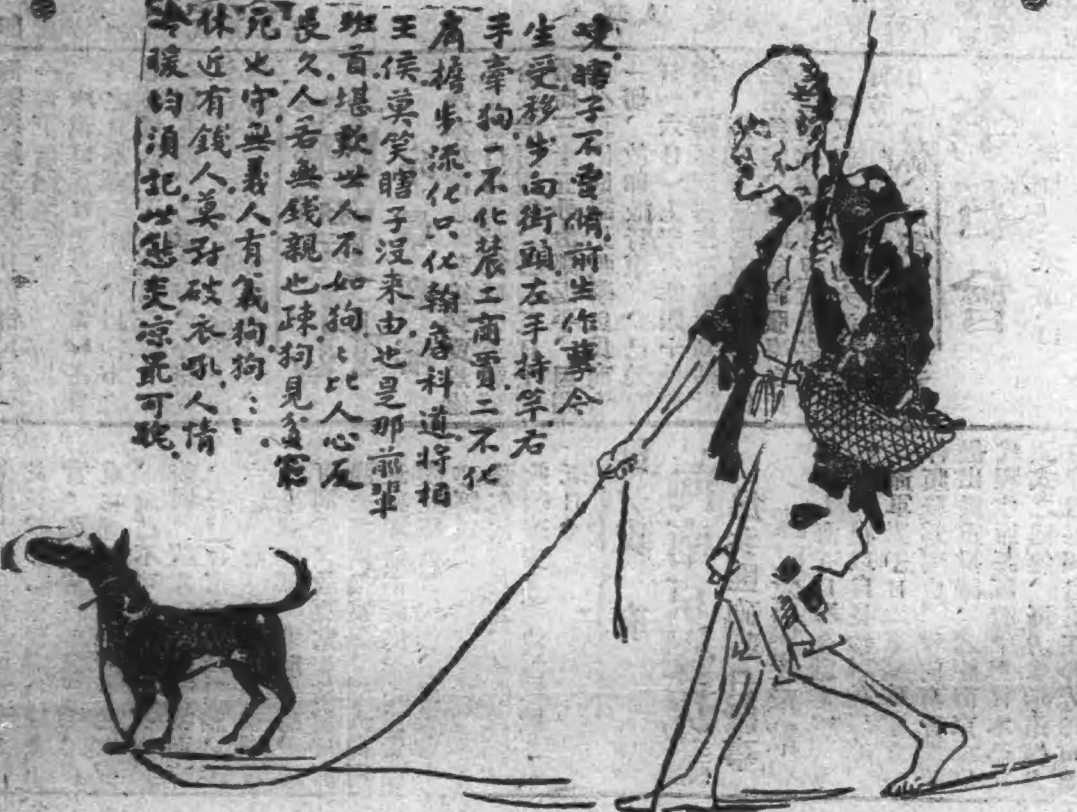 嘆瞎子不雪脩前生作孽今
生受移步向街頭左手持竿右
手牽狗一不化農工商賈二不化
肩擔步流化只化翰詹科道將相
王侯莫笑瞎子沒來由也是那前輩
班首堪歎世人不如狗〻比人心反
長久人若無錢親也疎狗見貧窮
死也守無義人有義狗狗〻〻
休近有錢人莫對破衣吼人情
冷暖均須記世態炎涼最可